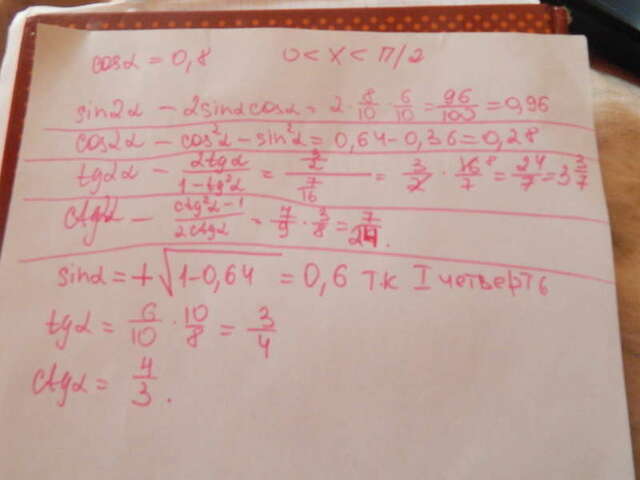 cosα = 0,8 0 < x < π/2
sin2α − 2sinαcosα = 2 · 8/10 · 6/10 = 96/100 = 0,96
cos2α − cos²α − sin²α = 0,64 − 0,36 = 0,28
tg2α − 2tgα/(1 − tg²α) = (3/2)/(7/16) = 3/2 · 16⁸/7 = 24/7 = 3 3/7
ctg2α − (ctg²α − 1)/(2ctgα) = 7/9 · 3/8 = 7/24.
sinα = +√(1 − 0,64) = 0,6 т.к I четверть
tgα = 6/10 · 10/8 = 3/4
ctgα = 4/3.